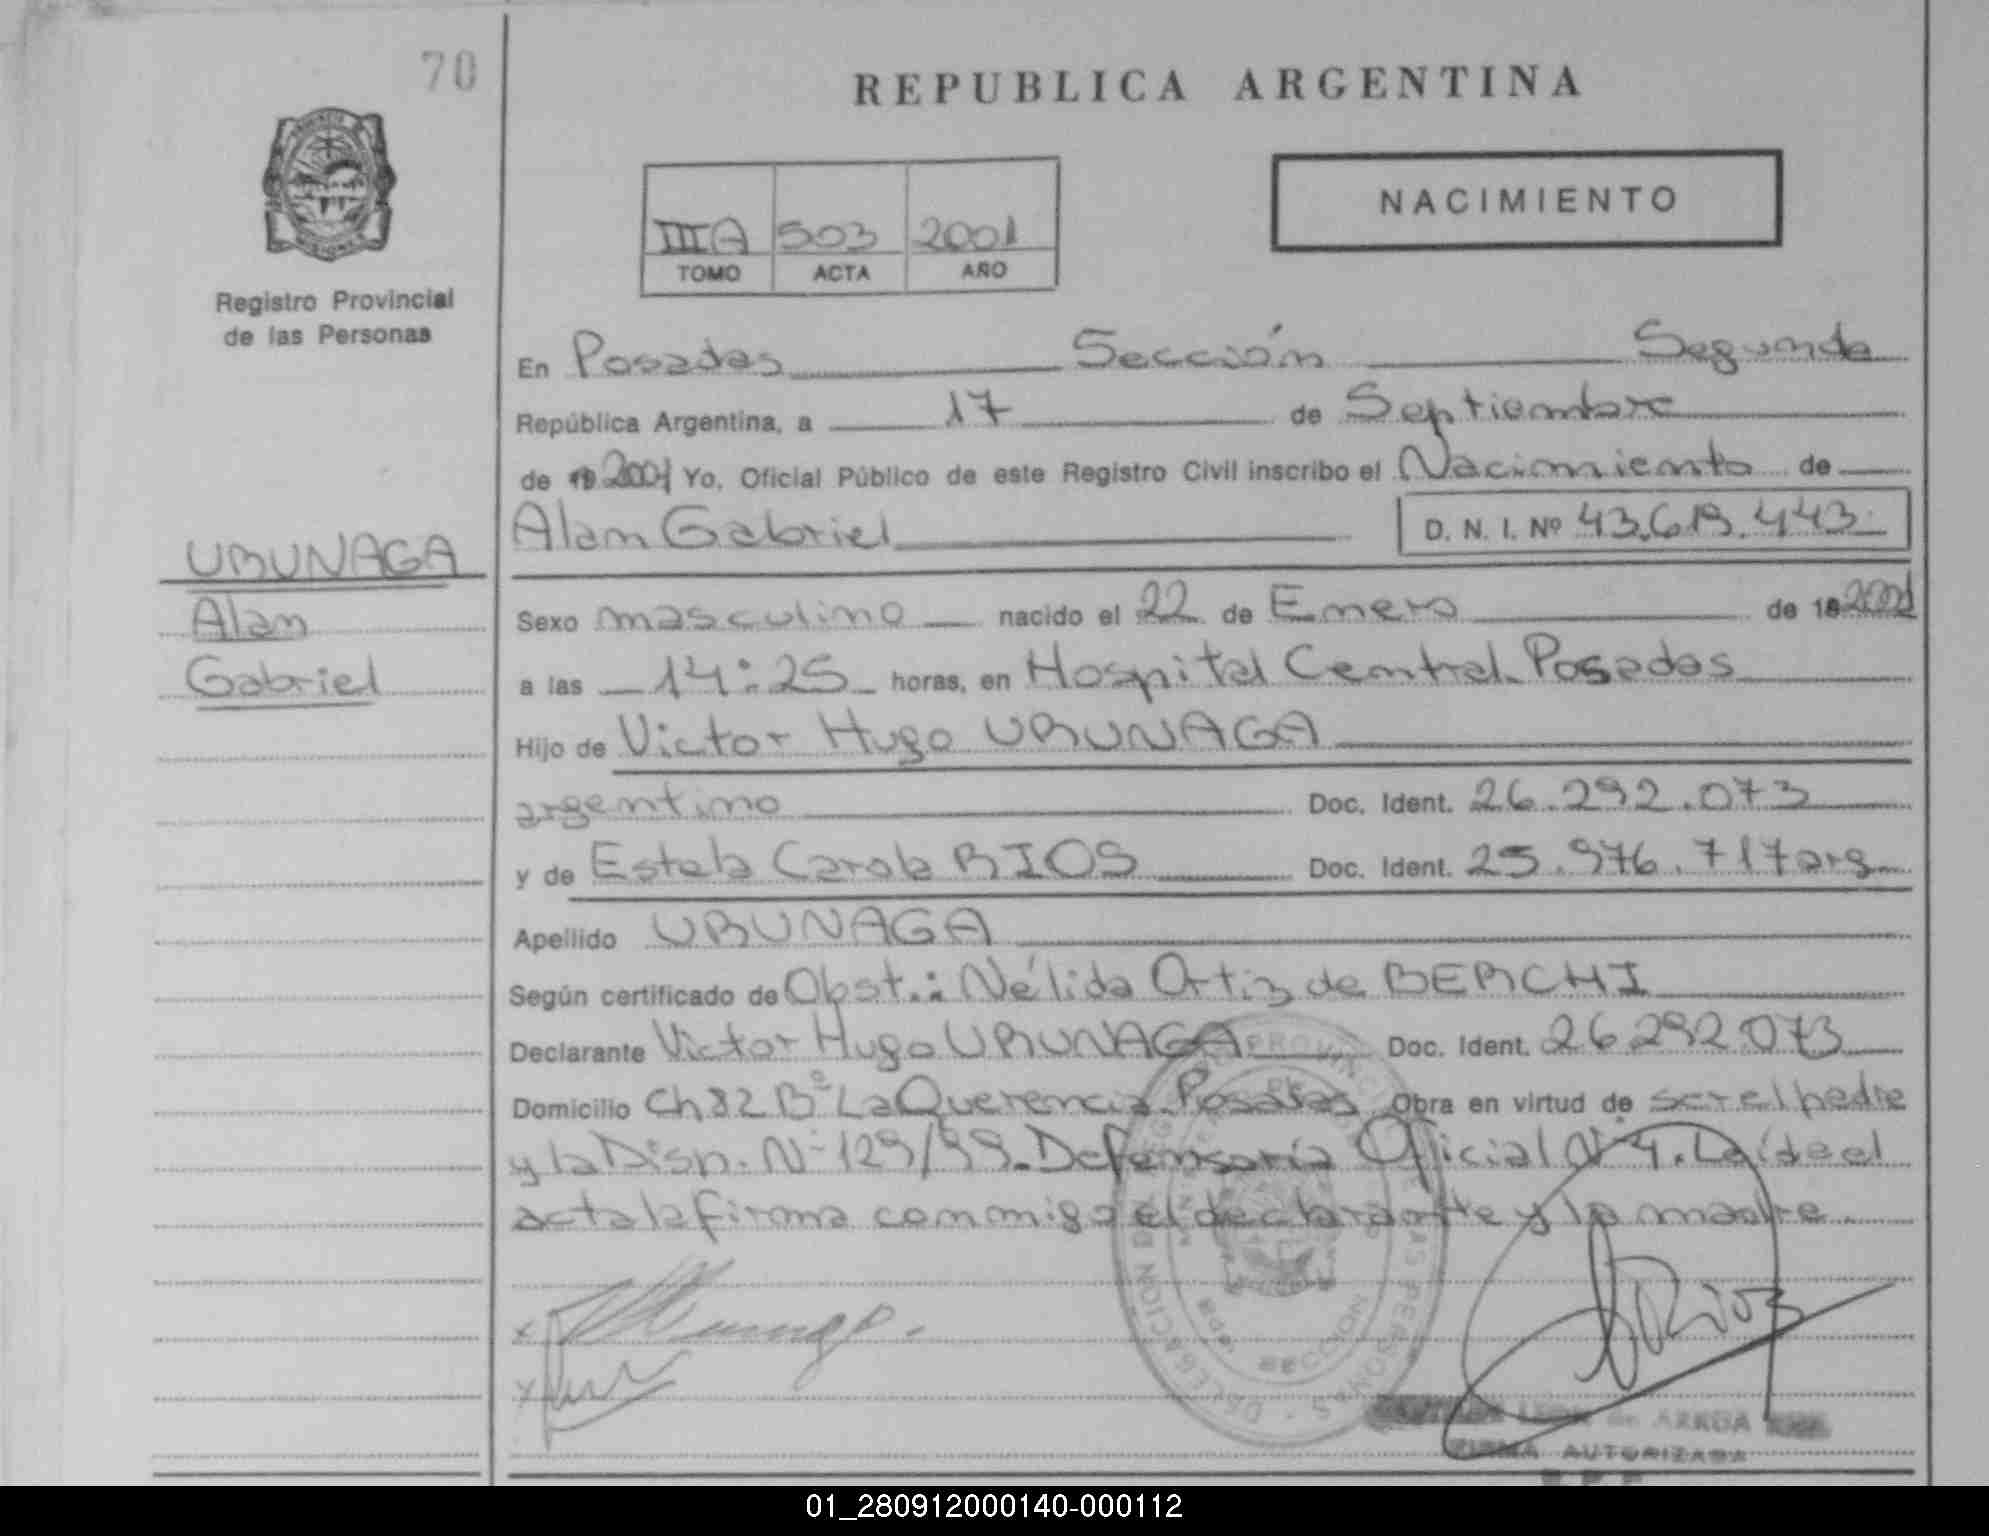 70
REPUBLICA ARGENTINA
NACIMIENTO
IIIA 503 2001
TOMO ACTA AÑO
Registro Provincial
de las Personas
En Posadas Sección Segunda
República Argentina, a 17 de Septiembre
de 19 2001 Yo, Oficial Público de este Registro Civil inscribo el Nacimiento de
Alan Gabriel D. N. I. Nº 43.619.443
URUNAGA
Alan
Gabriel
Sexo masculino nacido el 22 de Enero de 19 2001
a las 14:25 horas, en Hospital Central Posadas
Hijo de Victor Hugo URUNAGA
argentino Doc. Ident. 26.292.073
y de Estela Carola RIOS Doc. Ident. 25.976.717 arg
Apellido URUNAGA
Según certificado de Obst.: Nélida Ortiz de BERCHI
Declarante Victor Hugo URUNAGA Doc. Ident. 26 292 073
Domicilio Ch 82 Bº La Querencia Posadas Obra en virtud de ser el padre
y la Disp. Nº 129/99. Defensoría Oficial Nº 4. Leída el
acta la firma conmigo el declarante y la madre.
DELEGACION DEL REGISTRO PROVINCIAL DE LAS PERSONAS
MISIONES
SECCION
Rios
de ARRGA
FIRMA AUTORIZADA
R.P.P.
01_280912000140-000112